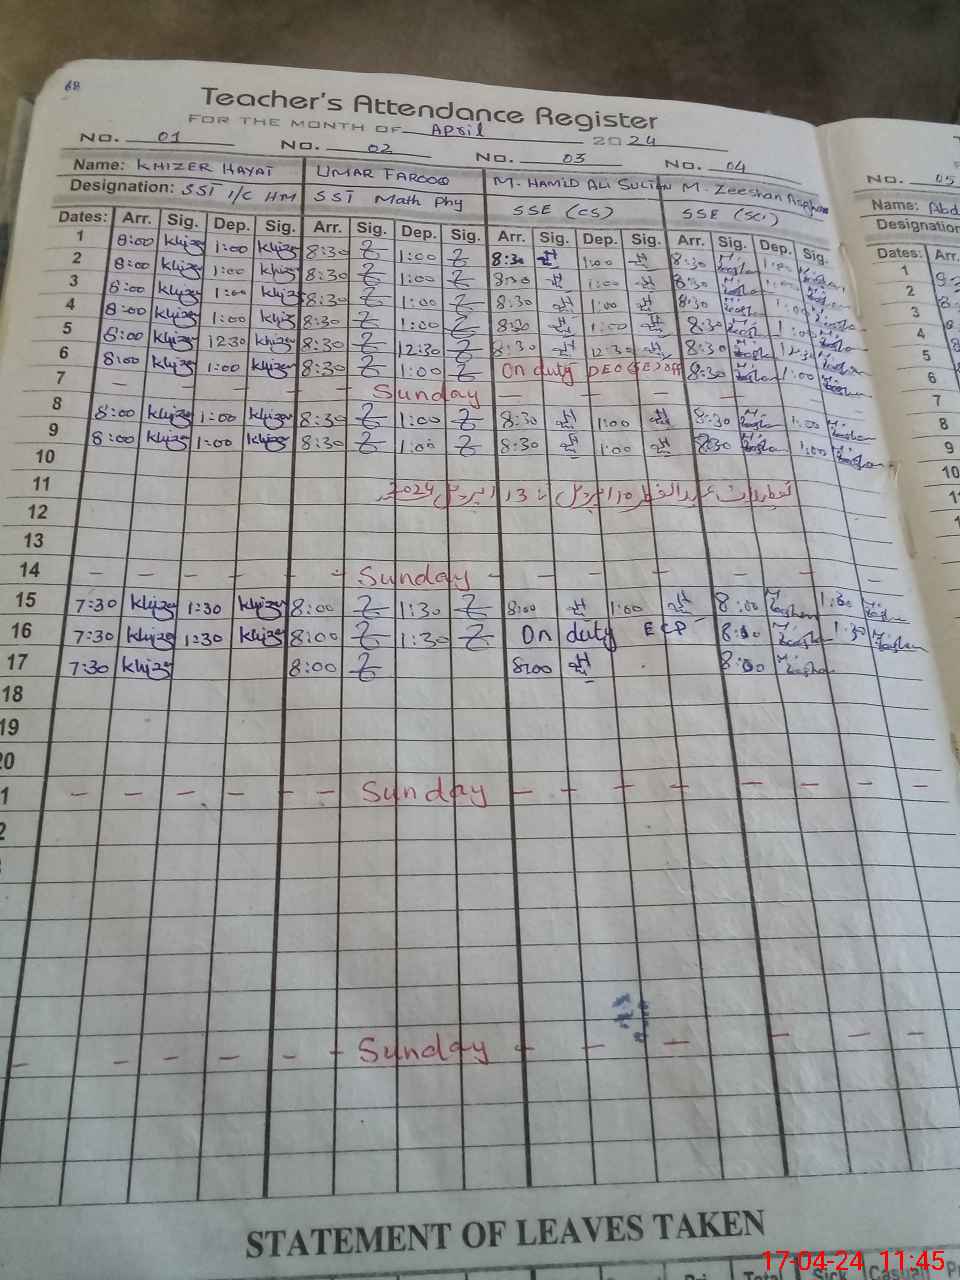 68
Teacher's Attendance Register
FOR THE MONTH OF April 2024
NO. 01 NO. 02 NO. 03 NO. 04 NO. 05
Name: KHIZER HAYAT UMAR FAROOQ M. HAMID ALI SULTAN M. Zeeshan Asghar Name: Abd
Designation: SST I/C HM SST Math Phy SSE (CS) SSE (SCI) Designation
Dates: Arr. Sig. Dep. Sig. Arr. Sig. Dep. Sig. Arr. Sig. Dep. Sig. Arr. Sig. Dep. Sig. Dates: Arr.
1 8:00 khizer 1:00 khizer 8:30 1:00 8:30 1:00 8:30 1:00 1
2 8:00 khizer 1:00 khizer 8:30 1:00 8:30 1:00 8:30 1:00 2
3 8:00 khizer 1:00 khizer 8:30 1:00 8:30 1:00 8:30 1:00 3
4 8:00 khizer 1:00 khizer 8:30 1:00 8:30 1:00 8:30 1:00 4
5 8:00 khizer 12:30 khizer 8:30 12:30 8:30 12:30 8:30 12:30 5
6 8:00 khizer 1:00 khizer 8:30 1:00 On duty DEO 8:30 1:00 6
7 – – – – – Sunday – – – – – 7
8 8:00 khizer 1:00 khizer 8:30 1:00 8:30 1:00 8:30 1:00 8
9 8:00 khizer 1:00 khizer 8:30 1:00 8:30 1:00 8:30 1:00 9
10 10
11 تعطیلات عیدالفطر 10 اپریل تا 13 اپریل 2024
12
13
14 – – – – – Sunday – – – – – –
15 7:30 khizer 1:30 khizer 8:00 1:30 8:00 1:00 8:00 1:30
16 7:30 khizer 1:30 khizer 8:00 1:30 On duty ECP 8:00 1:30
17 7:30 khizer 8:00 8:00 8:00
18
19
20
1 – – – – – – Sunday – – – – – – – –
2
– – – – – – Sunday – – – – – –
STATEMENT OF LEAVES TAKEN
Total Sick Casual
17-04-24 11:45